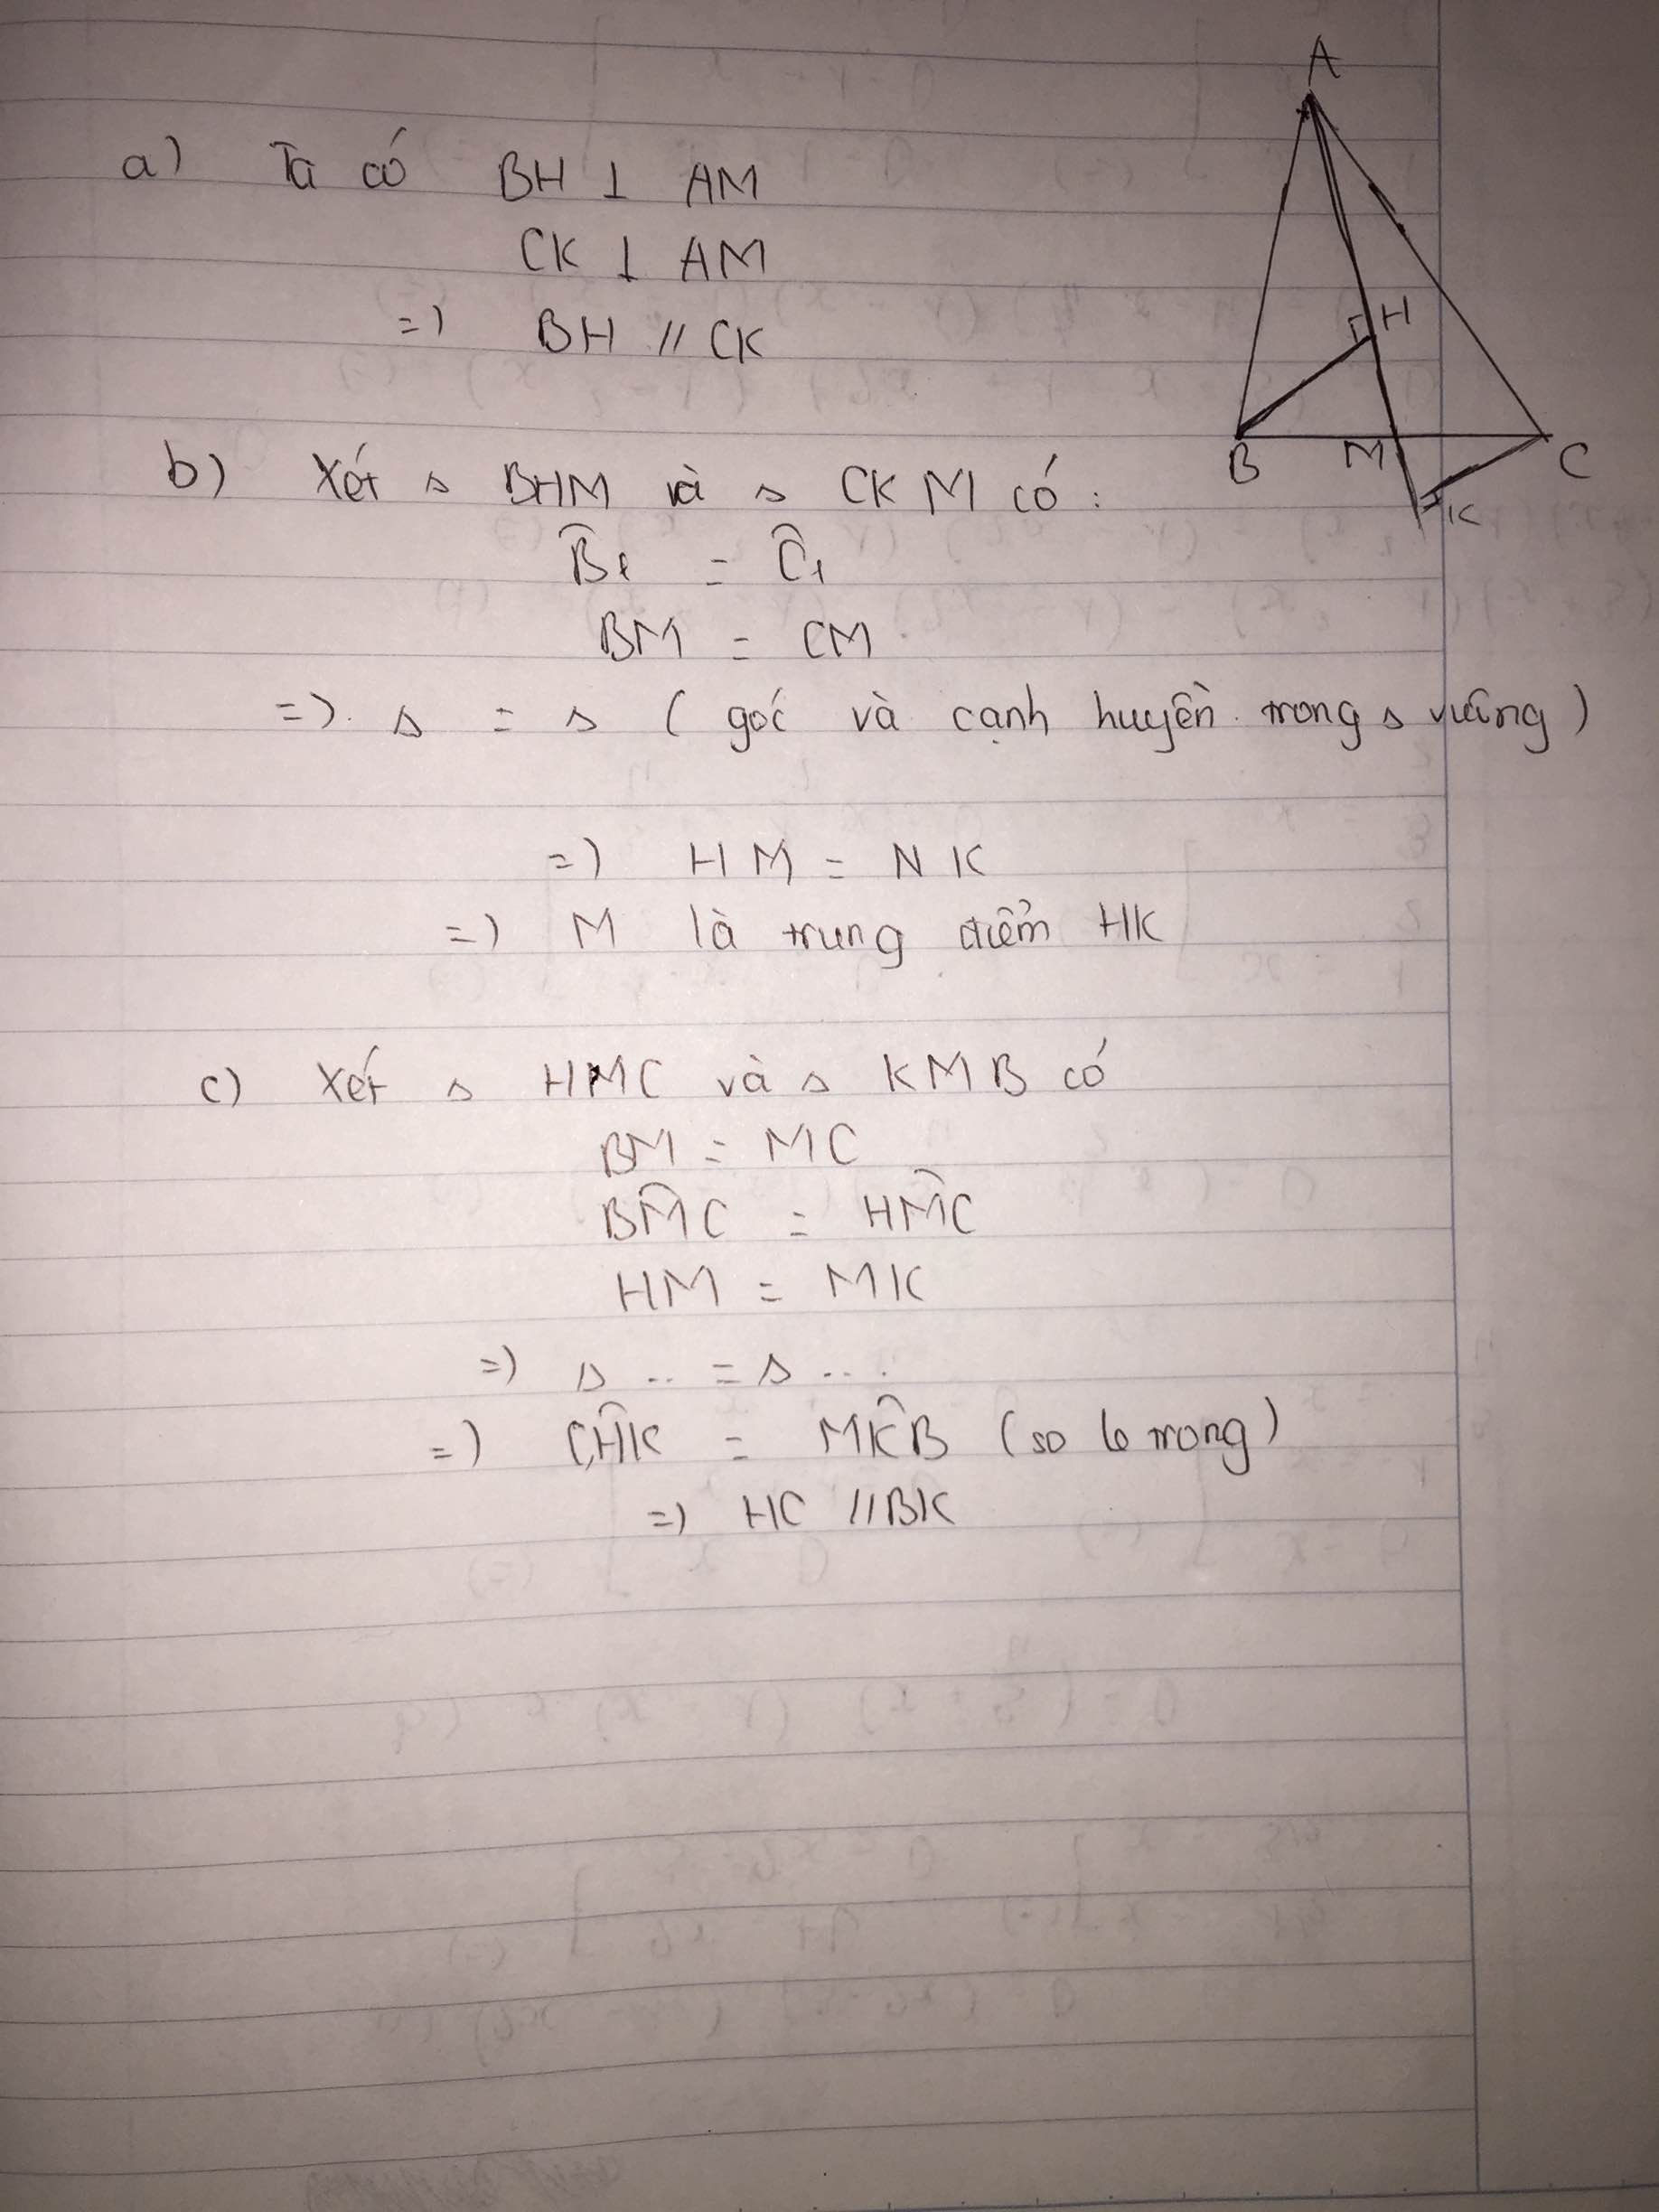 A
a) Ta có BH ⊥ AM
CK ⊥ AM
=) BH // CK
H
B M C
K
b) Xét Δ BHM và Δ CKM có :
B̂₁ = Ĉ₁
BM = CM
=). Δ = Δ ( góc và cạnh huyền trong Δ vuông )
=) HM = NK
=) M là trung điểm HK
c) Xét Δ HMC và Δ KMB có
BM = MC
BM̂C = HM̂C
HM = MK
=) Δ .. = Δ ...
=) CĤK = MK̂B (so le trong)
=) HC // BK